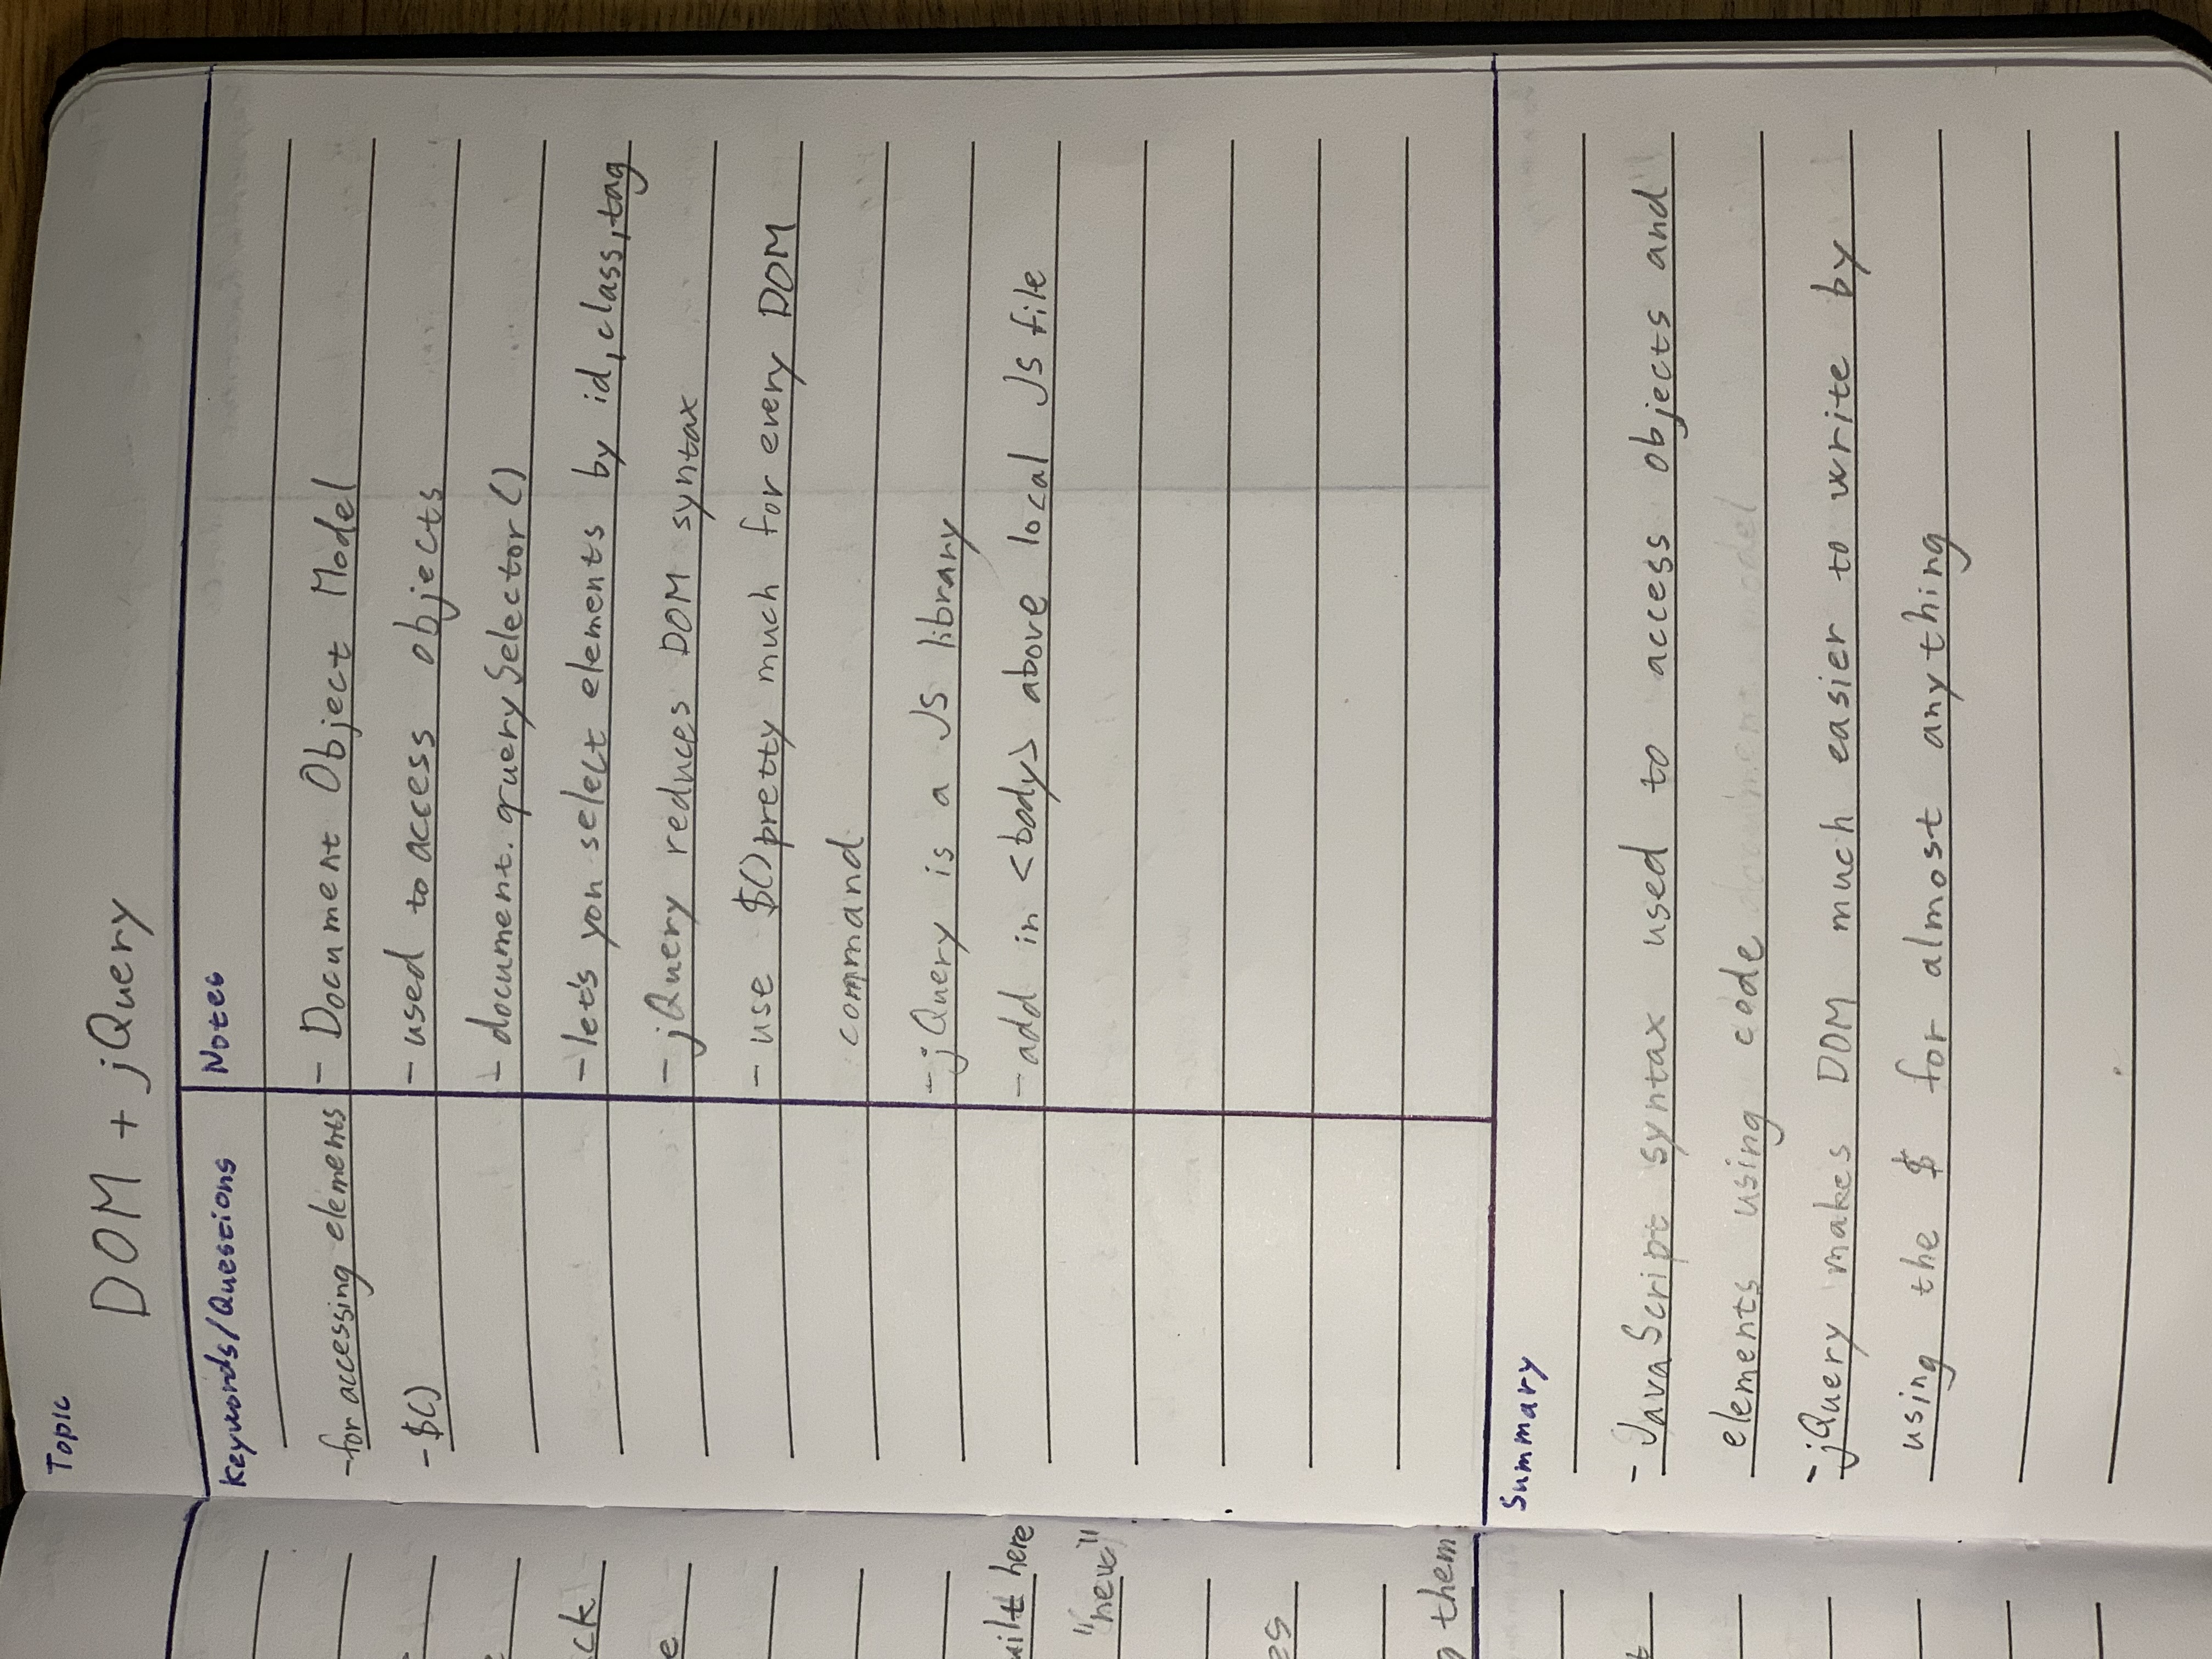 Topic
DOM + jQuery
Keywords/Questions
-for accessing elements
-$()
Notes
- Document Object Model
- used to access objects
- document.querySelector()
- let's you select elements by id, class, tag
- jQuery reduces DOM syntax
- use $() pretty much for every DOM
command
- jQuery is a JS library
- add in <body> above local JS file
Summary
- JavaScript syntax used to access objects and
elements using code
- jQuery makes DOM much easier to write by
using the $ for almost anything
ck
e
here
"new"
es
them